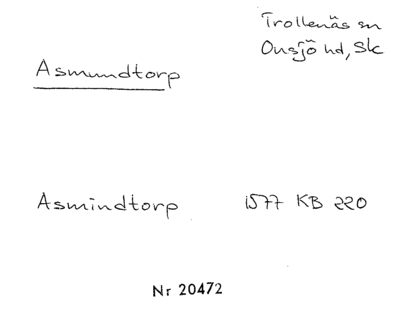 Trollenäs sn
Onsjö hd, Sk
Asmundtorp
Asmindtorp 1577 KB 220
Nr 20472